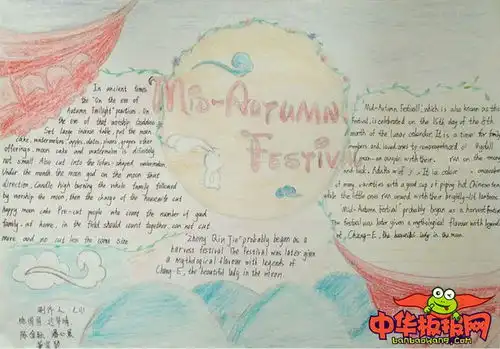 Mid-Autumn
Festival
In ancient times
the "On the eve of
Autumn Twilight" position. In
the eve of that worship Goddess.
Set large incense table, put the moon
cake, watermelon, apples, dates, plums, grapes other
offerings, moon cake and watermelon is absolutely
not small. Also cut into the lotus-shaped watermelon.
Under the moon, the moon god on the moon that
direction, Candle high burning the whole family followed
by worship the moon, then the charge of the housewife cut
happy moon cake Pre-cut people who count the number of good
family, at home, in the field should count together, can not cut
more and no cut less the same size
Mid-Autumn Festival, which is also known as the
Festival, is celebrated on the 15th day of the 8th
month of the lunar calendar. It is a time for
members and loved ones to congregate and
moon - an augur with their
and luck. Adults will
of many varieties with a good cup of piping hot Chinese tea
while the little ones run around with their brightly-lit lanterns
Mid-Autumn Festival" probably began as a harvest festival
The festival was later given a mythological flavour with legends
of Chang-E, the beautiful lady in the moon.
Zhong Qiu Jie" probably began as a
harvest festival. The festival was later given
a mythological flavour with legends of
Chang-E, the beautiful lady in the moon.
制作人
中华板报网
banbaowang.com